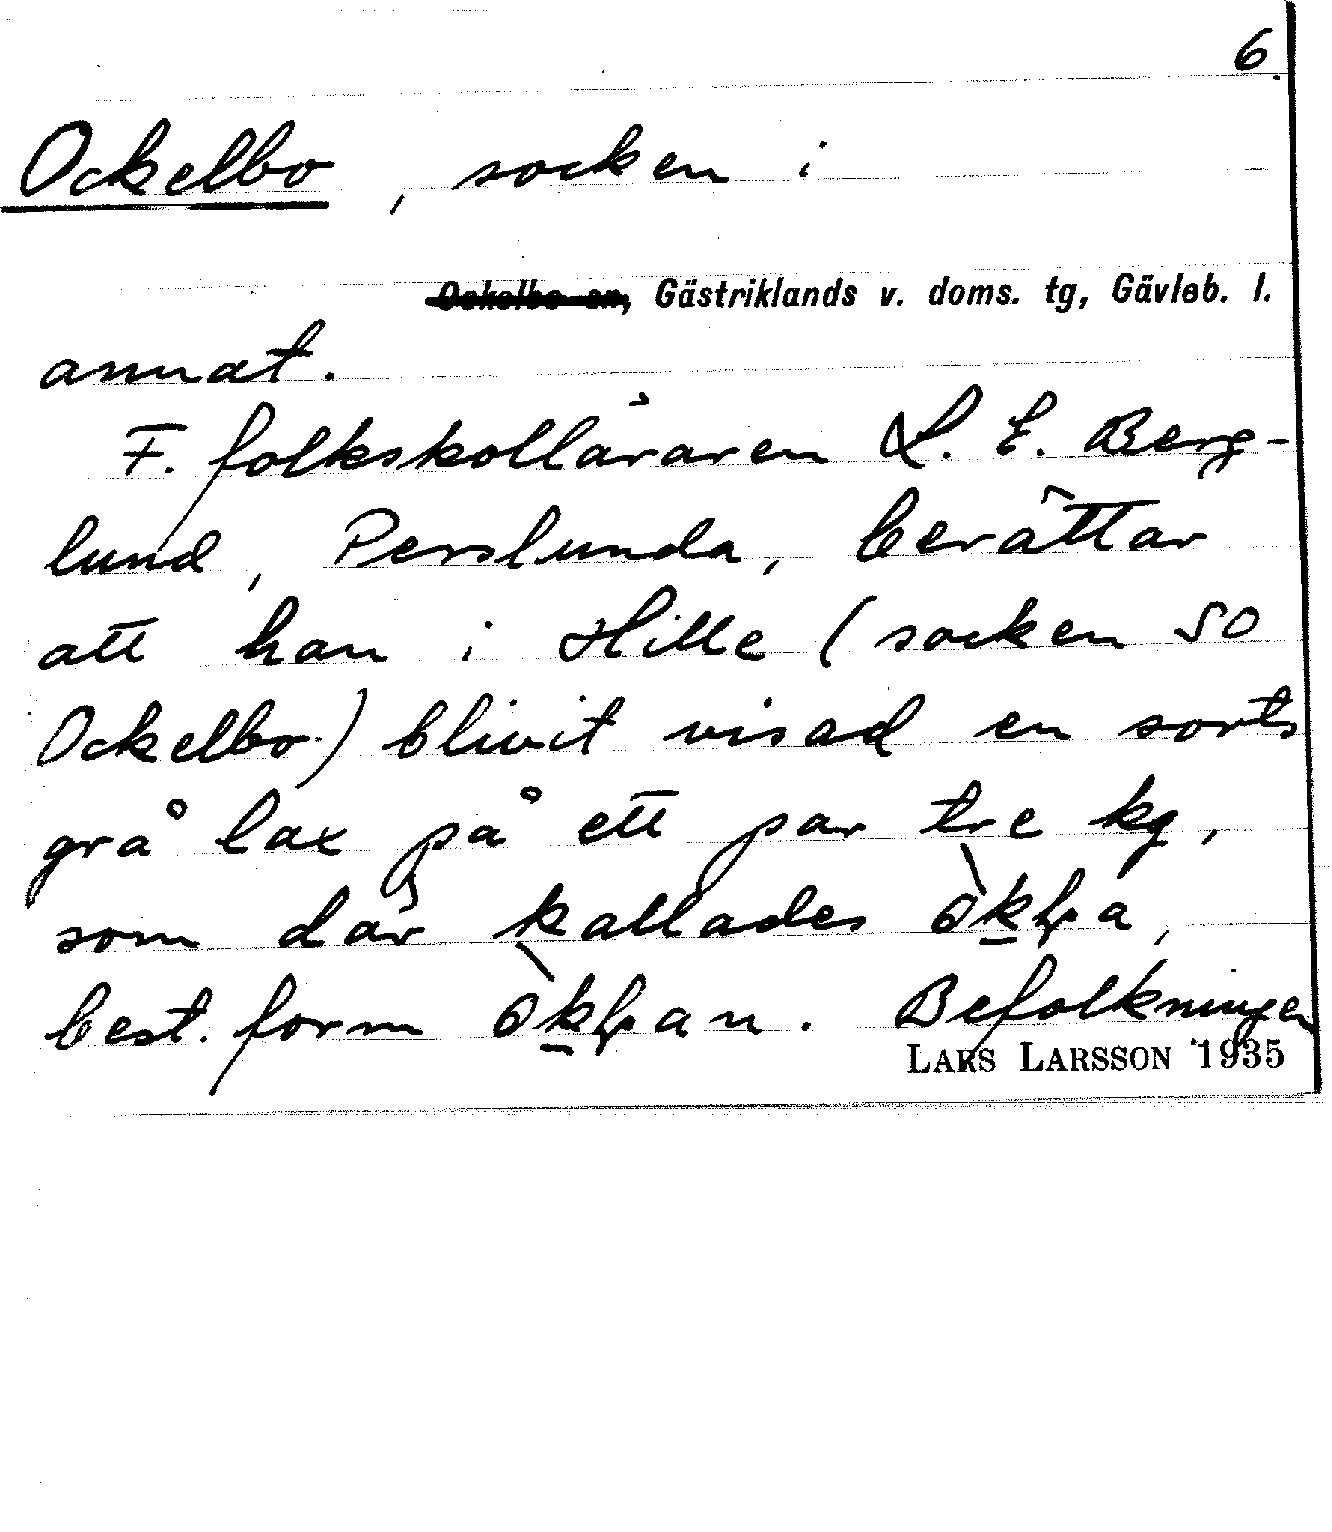 6.
Ockelbo, socken i
Ockelbo sn, Gästriklands v. doms. tg, Gävleb. l.
annat.
F. folkskolläraren L. E. Berg-
lund, Perslunda, berättar
att han i Hille (socken SO
Ockelbo) blivit visad en sorts
grå lax på ett par tre kg,
som där kallades
best. form . Befolkningen
LARS LARSSON 1935